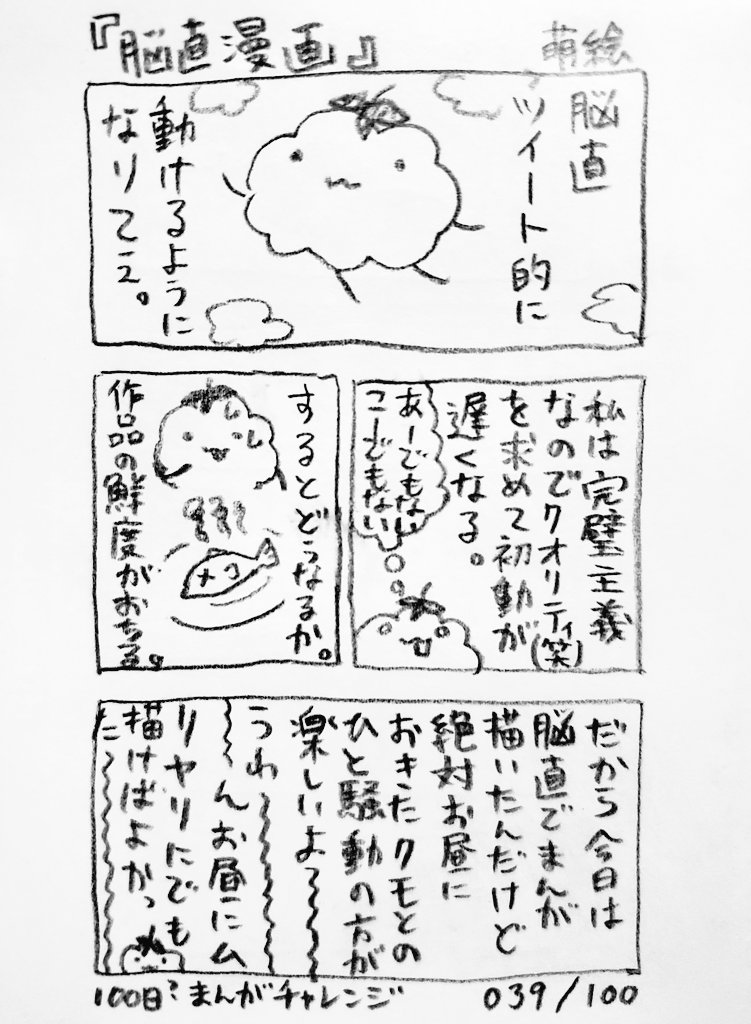 『脳直漫画』
萌絵
脳直
ツイート的に
動けるように
なりてえ。
私は完璧主義
なのでクオリティ(笑)
を求めて初動が
遅くなる。
あーでもない
こーでもない
するとどうなるか。
作品の鮮度がおちる。
だから今日は
脳直でまんが
描いたんだけど
絶対お昼に
おきたクモとの
ひと騒動の方が
楽しいよ〜〜〜
うわ〜〜〜
〜〜んお昼にム
リヤリにでも
描けばよかっ
た〜〜〜
100日?まんがチャレンジ
039/100